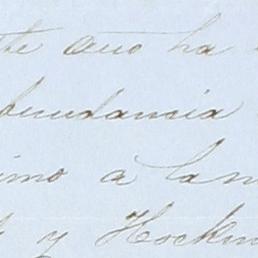 te año ha
bundancia
imo á la
y Hockin